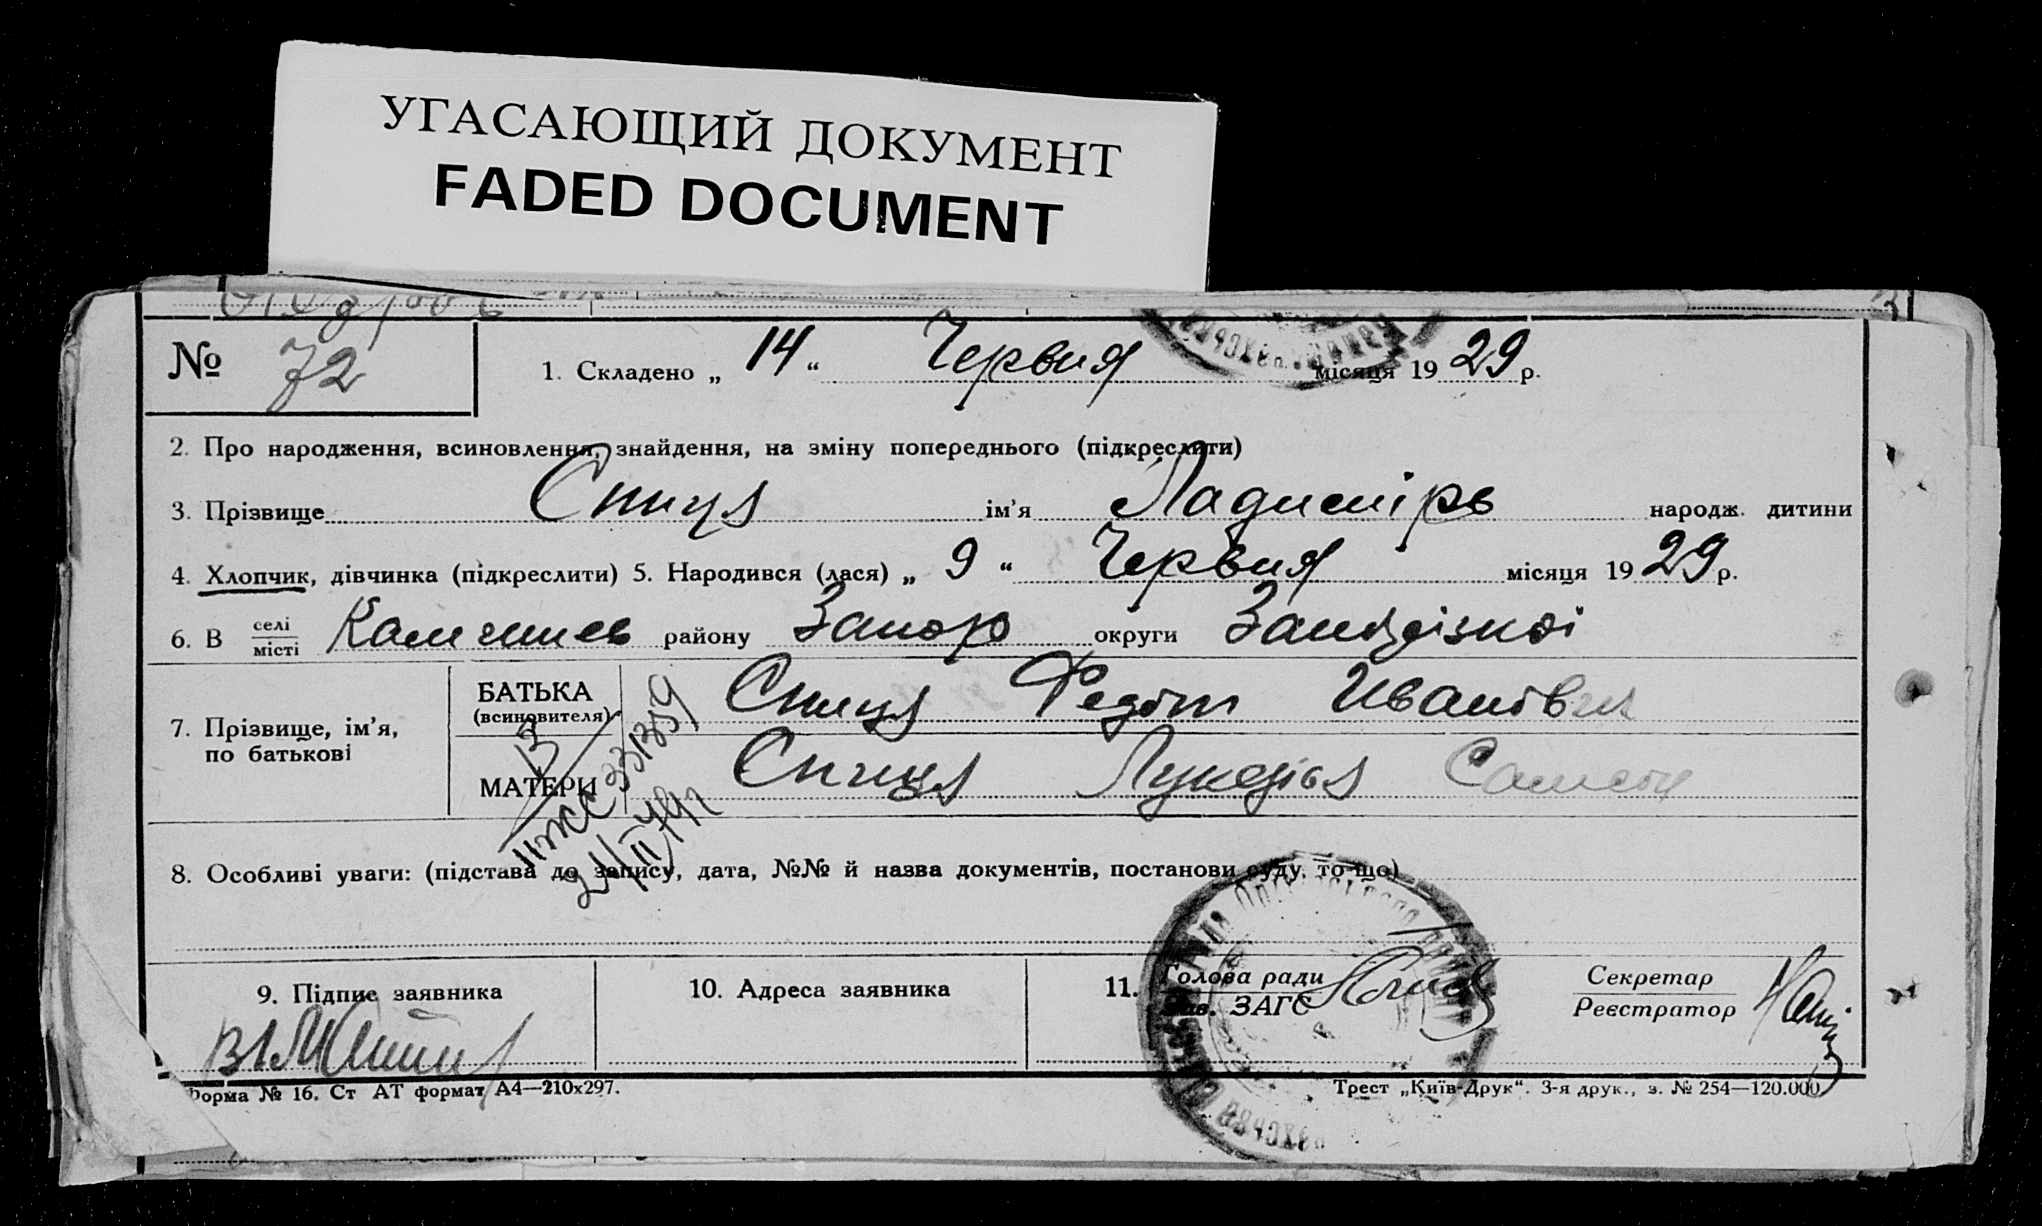 УГАСАЮЩИЙ ДОКУМЕНТ
FADED DOCUMENT
№ 72
1. Складено „ 14 “ Червня місяця 19 29 р.
2. Про народження, всиновлення, знайдення, на зміну попереднього (підкреслити)
3. Прізвище Спиця ім'я Ладимірь народж. дитини
4. Хлопчик, дівчинка (підкреслити) 5. Народився (лася) „ 9 “ Червня місяця 19 29 р.
6. В селі місті району Запор округи
7. Прізвище, ім'я, по батькові
БАТЬКА (всиновителя) Спиця Федот Иванов
МАТЕРИ Спиця
8. Особливі уваги: (підстава до запису, дата, №№ й назва документів, постанови суду, то-що)
9. Підпис заявника
10. Адреса заявника
11. Голова ради
Зав. ЗАГС
Секретар
Реєстратор
Форма № 16. Ст АТ формат А4—210х297.
Трест „Київ-Друк“. 3-я друк., з. № 254—120.000